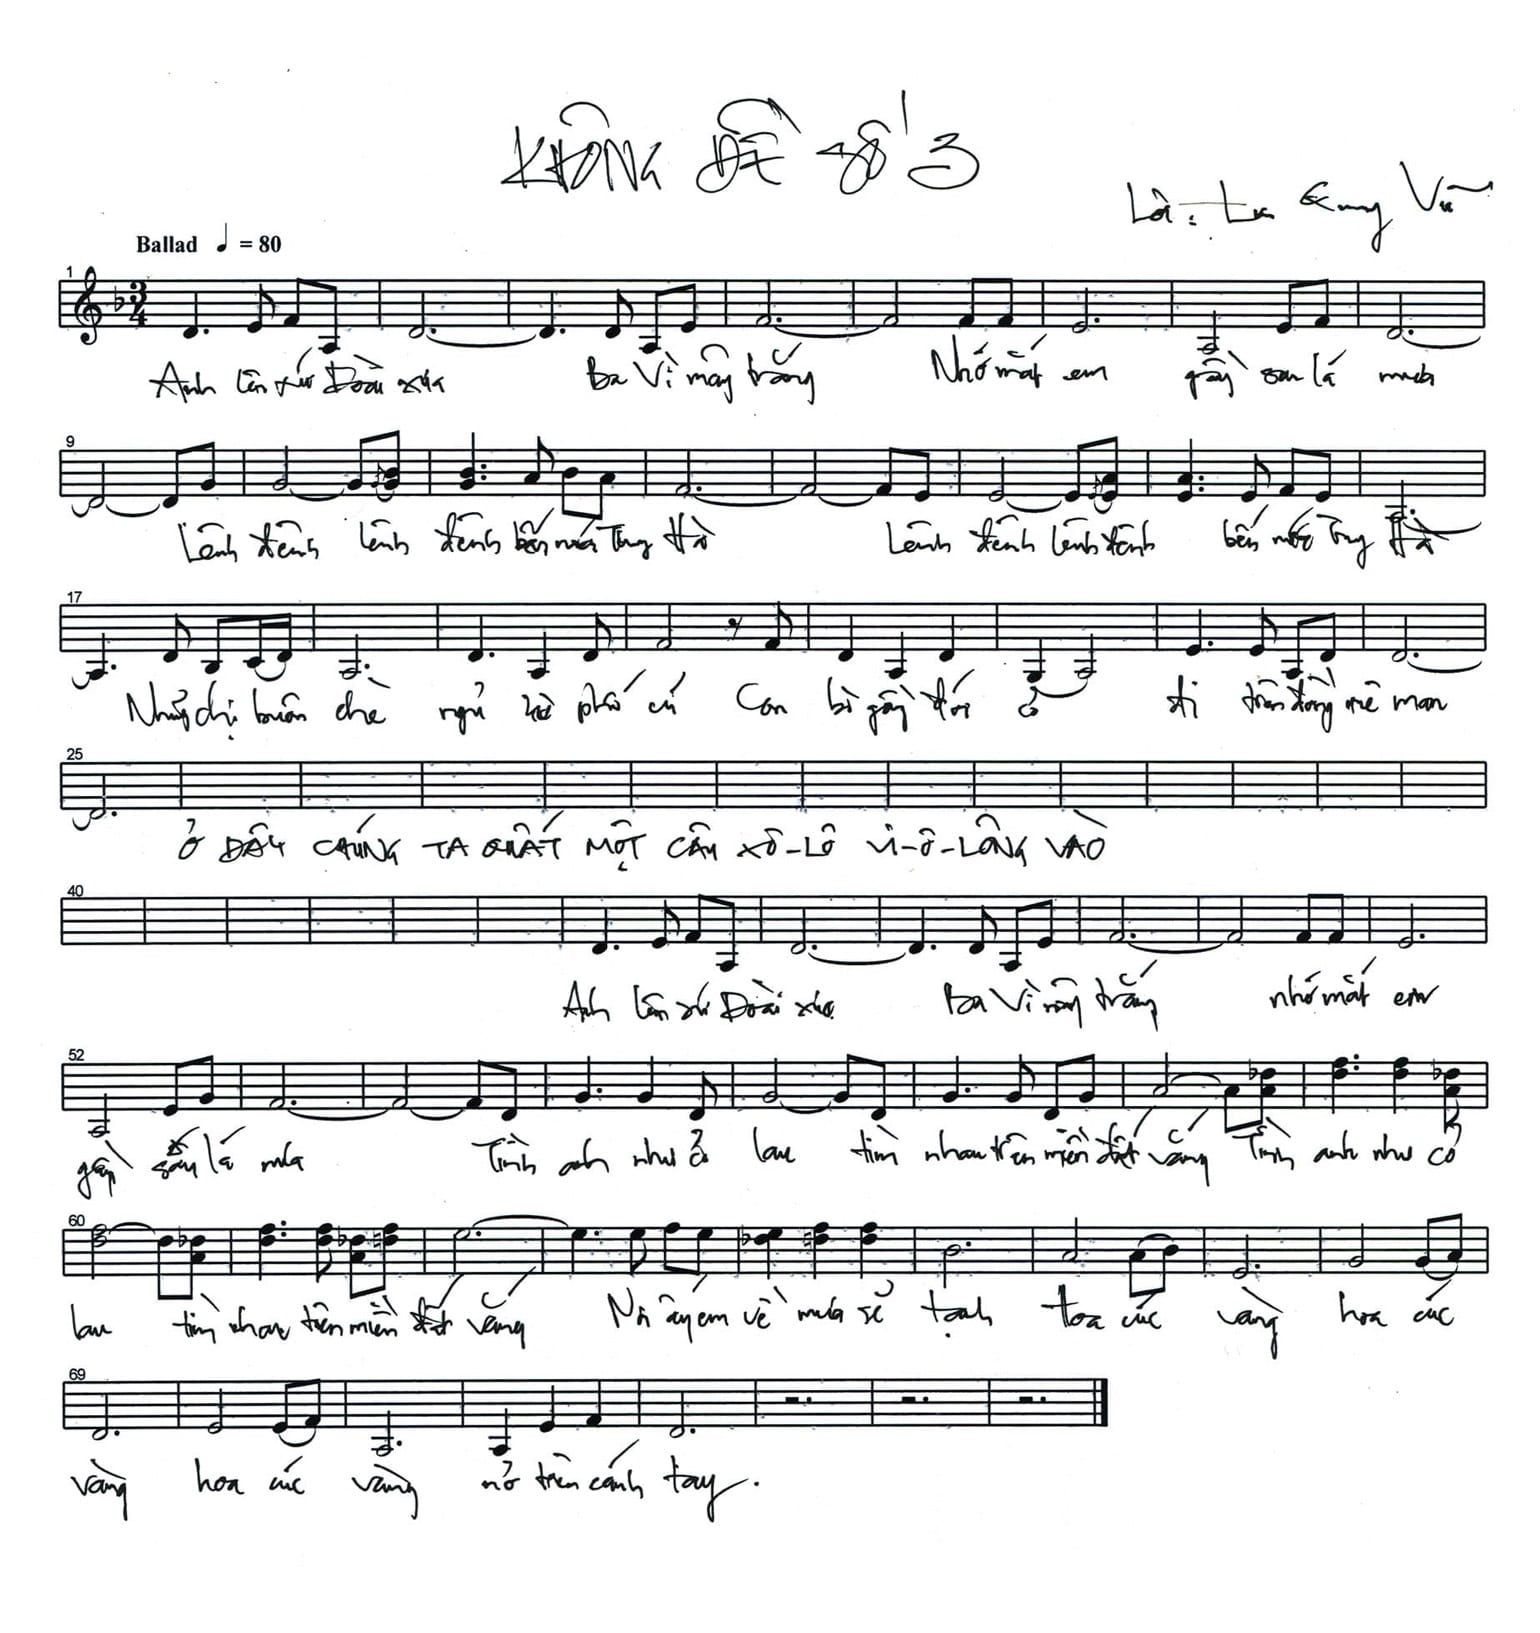 KHÔNG ĐỀ SỐ 3
Lời: Lưu Quang Vũ
Ballad ♩ = 80
1
3
4
Anh lên xứ Đoài xưa Ba Vì mây trắng Nhớ mắt em gầy sau lá mưa
9
Lênh đênh lênh đênh bến nước Tùng Hà Lênh đênh lênh đênh bến nước Tùng Hà
17
Những chị buôn chè ngủ hè phố cũ Con bò gầy đói cỏ đi trên đồng mê man
25
Ở ĐÂY CHÚNG TA QUẤT MỘT CÂU XÔ-LÔ VI-Ô-LÔNG VÀO
40
Anh lên xứ Đoài xưa Ba Vì mây trắng nhớ mắt em
52
gầy sau lá mưa Tình anh như cỏ lau tìm nhau trên miền đất vắng Tình anh như cỏ
60
lau tìm nhau trên miền đất vắng Nơi ấy em về mưa sẽ tạnh hoa cúc vàng hoa cúc
69
vàng hoa cúc vàng nở trên cánh tay.